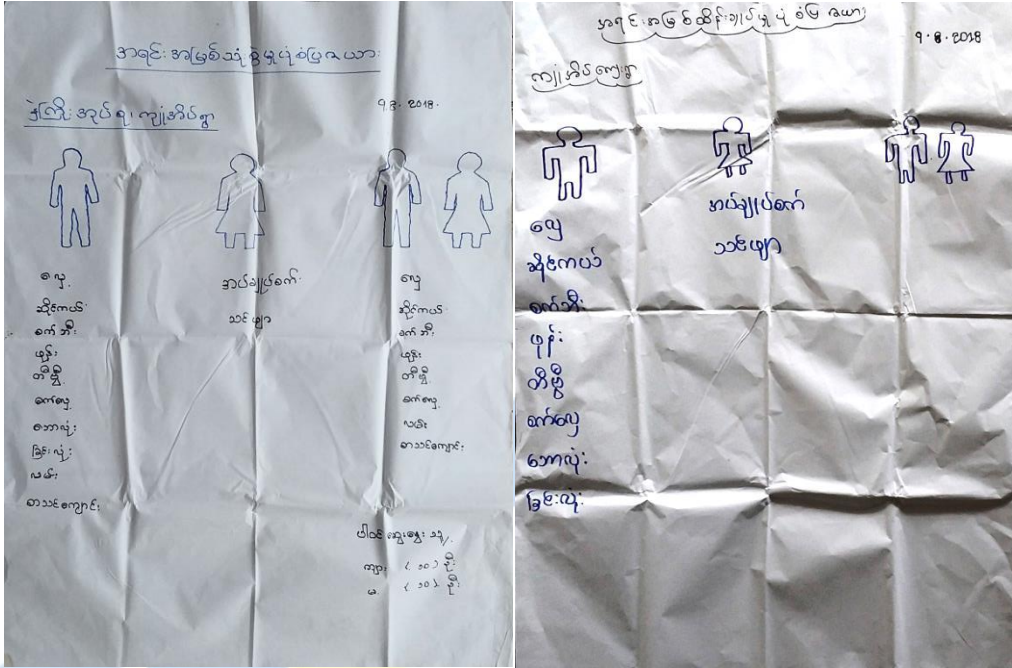 အရင်းအမြစ်သုံးစွဲမှုပုံစံပြဇယား
၎.၌. ၂၀၁၈.
ကျုံအိပ်ရွာ
လှေ
ဆိုင်ကယ်
စက်ဘီး
ဖုန်း
တီဗွီ
စက်လှေ
ဘောလုံး
ခြင်းလုံး
လမ်း
စာသင်ကျောင်း
အပ်ချုပ်စက်
သင်ဖျာ
လှေ
ဆိုင်ကယ်
စက်ဘီး
ဖုန်း
တီဗွီ
စက်လှေ
လမ်း
စာသင်ကျောင်း
ပါဝင်ဆွေးနွေးသူ
ကျား (၁၀) ဦး
မ (၁၀) ဦး
အရင်းအမြစ်ထိန်းချုပ်မှုပုံစံပြဇယား
9.8.2018
လှေ
ဆိုင်ကယ်
စက်ဘီး
ဖုန်း
တီဗွီ
စက်လှေ
ဘောလုံး
ခြင်းလုံး
အပ်ချုပ်စက်
သင်ဖျာ